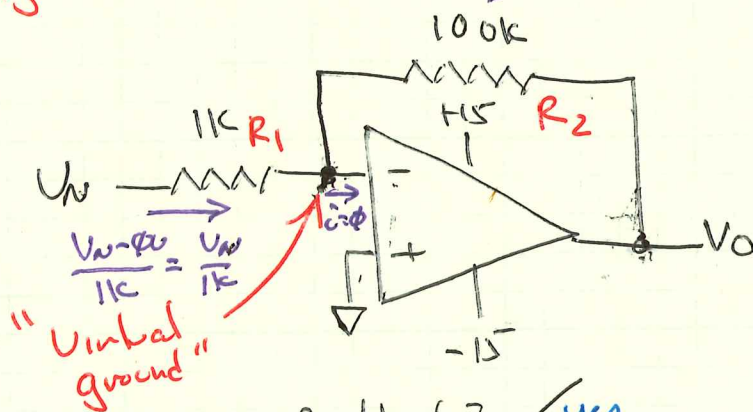 100k
+15
R2
1K R1
VN
-
i=φ
+
VO
VN-φV / 1K = VN / 1K
"Virtual
ground"
-15
yes